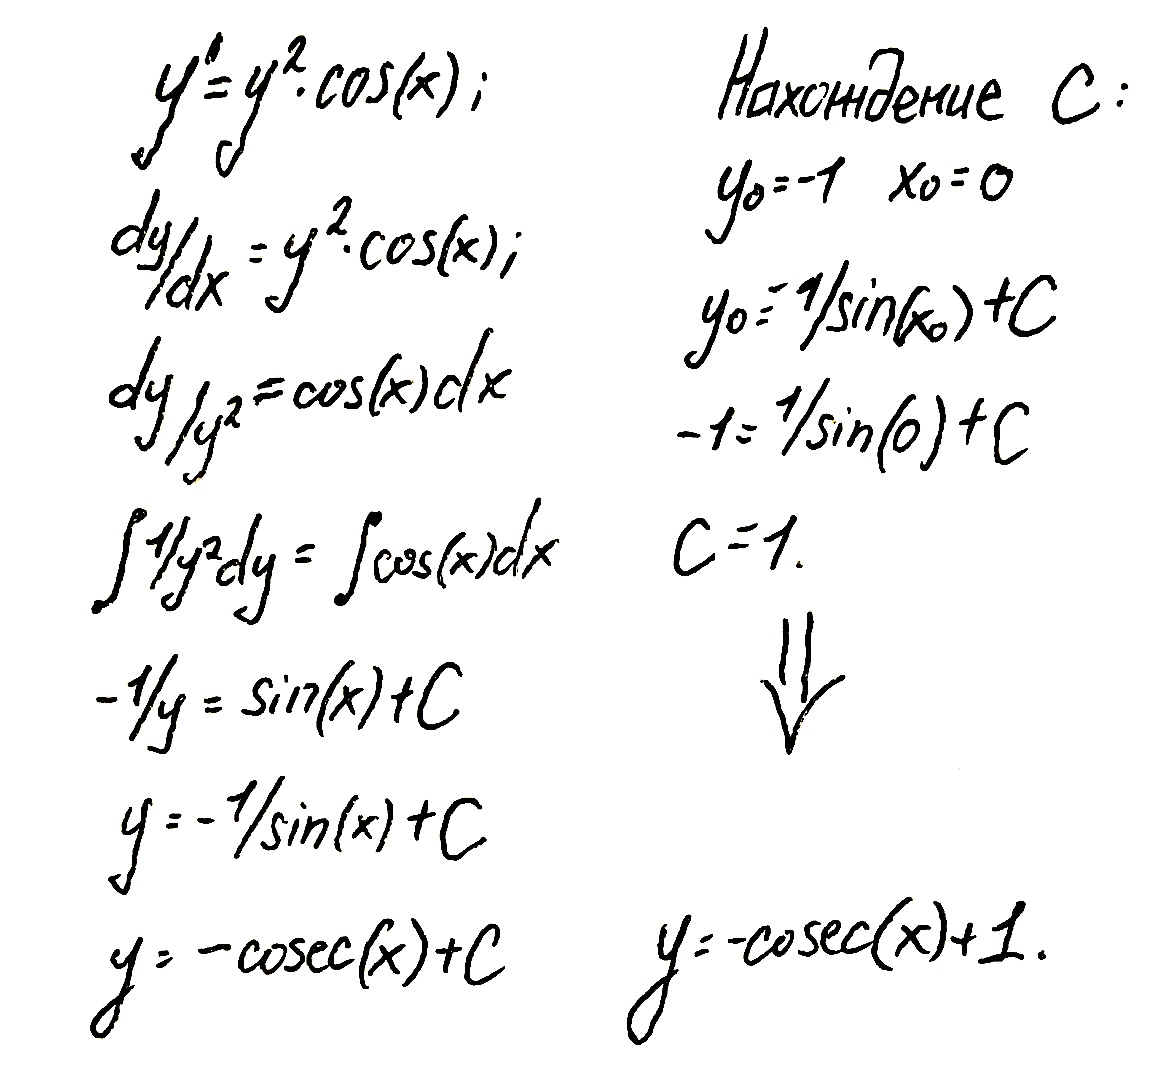 y' = y²·cos(x);
dy/dx = y²·cos(x);
dy/y² = cos(x)dx
∫1/y²dy = ∫cos(x)dx
-1/y = sin(x)+C
y = -1/sin(x)+C
y = -cosec(x)+C
Нахождение C:
y₀=-1 x₀=0
y₀=-1/sin(x₀)+C
-1=1/sin(0)+C
C=1.
⇓
y=-cosec(x)+1.